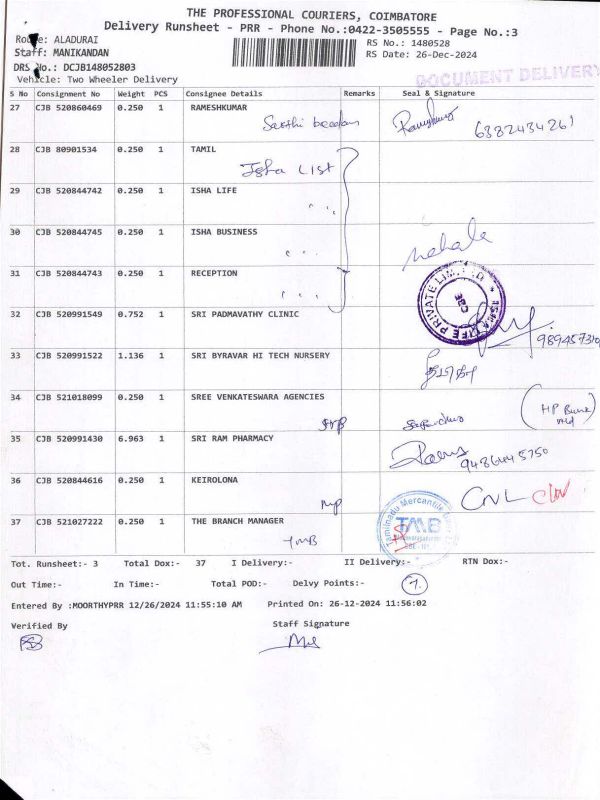 THE PROFESSIONAL COURIERS, COIMBATORE
Delivery Runsheet - PRR - Phone No.:0422-3505555 - Page No.:3
Route: ALADURAI
RS No.: 1480528
Staff: MANIKANDAN
RS Date: 26-Dec-2024
DRS No.: DCJB148052803
Vehicle: Two Wheeler Delivery
DOCUMENT DELIVERY
S No Consignment No Weight PCS Consignee Details Remarks Seal & Signature
27 CJB 520860469 0.250 1 RAMESHKUMAR
6382434261
28 CJB 80901534 0.250 1 TAMIL
Isha List
29 CJB 520844742 0.250 1 ISHA LIFE
30 CJB 520844745 0.250 1 ISHA BUSINESS
mehala
31 CJB 520844743 0.250 1 RECEPTION
ISHA LIFE PRIVATE LIMITED
CBE
32 CJB 520991549 0.752 1 SRI PADMAVATHY CLINIC
33 CJB 520991522 1.136 1 SRI BYRAVAR HI TECH NURSERY
34 CJB 521018099 0.250 1 SREE VENKATESWARA AGENCIES
(HP Bunk
35 CJB 520991430 6.963 1 SRI RAM PHARMACY
9486445750
36 CJB 520844616 0.250 1 KEIROLONA
Tamilnadu Mercantile
TMB
37 CJB 521027222 0.250 1 THE BRANCH MANAGER
TMB
Tot. Runsheet:- 3 Total Dox:- 37 I Delivery:- II Delivery:- RTN Dox:-
Out Time:- In Time:- Total POD:- Delvy Points:- 7
Entered By :MOORTHYPRR 12/26/2024 11:55:10 AM Printed On: 26-12-2024 11:56:02
Verified By Staff Signature